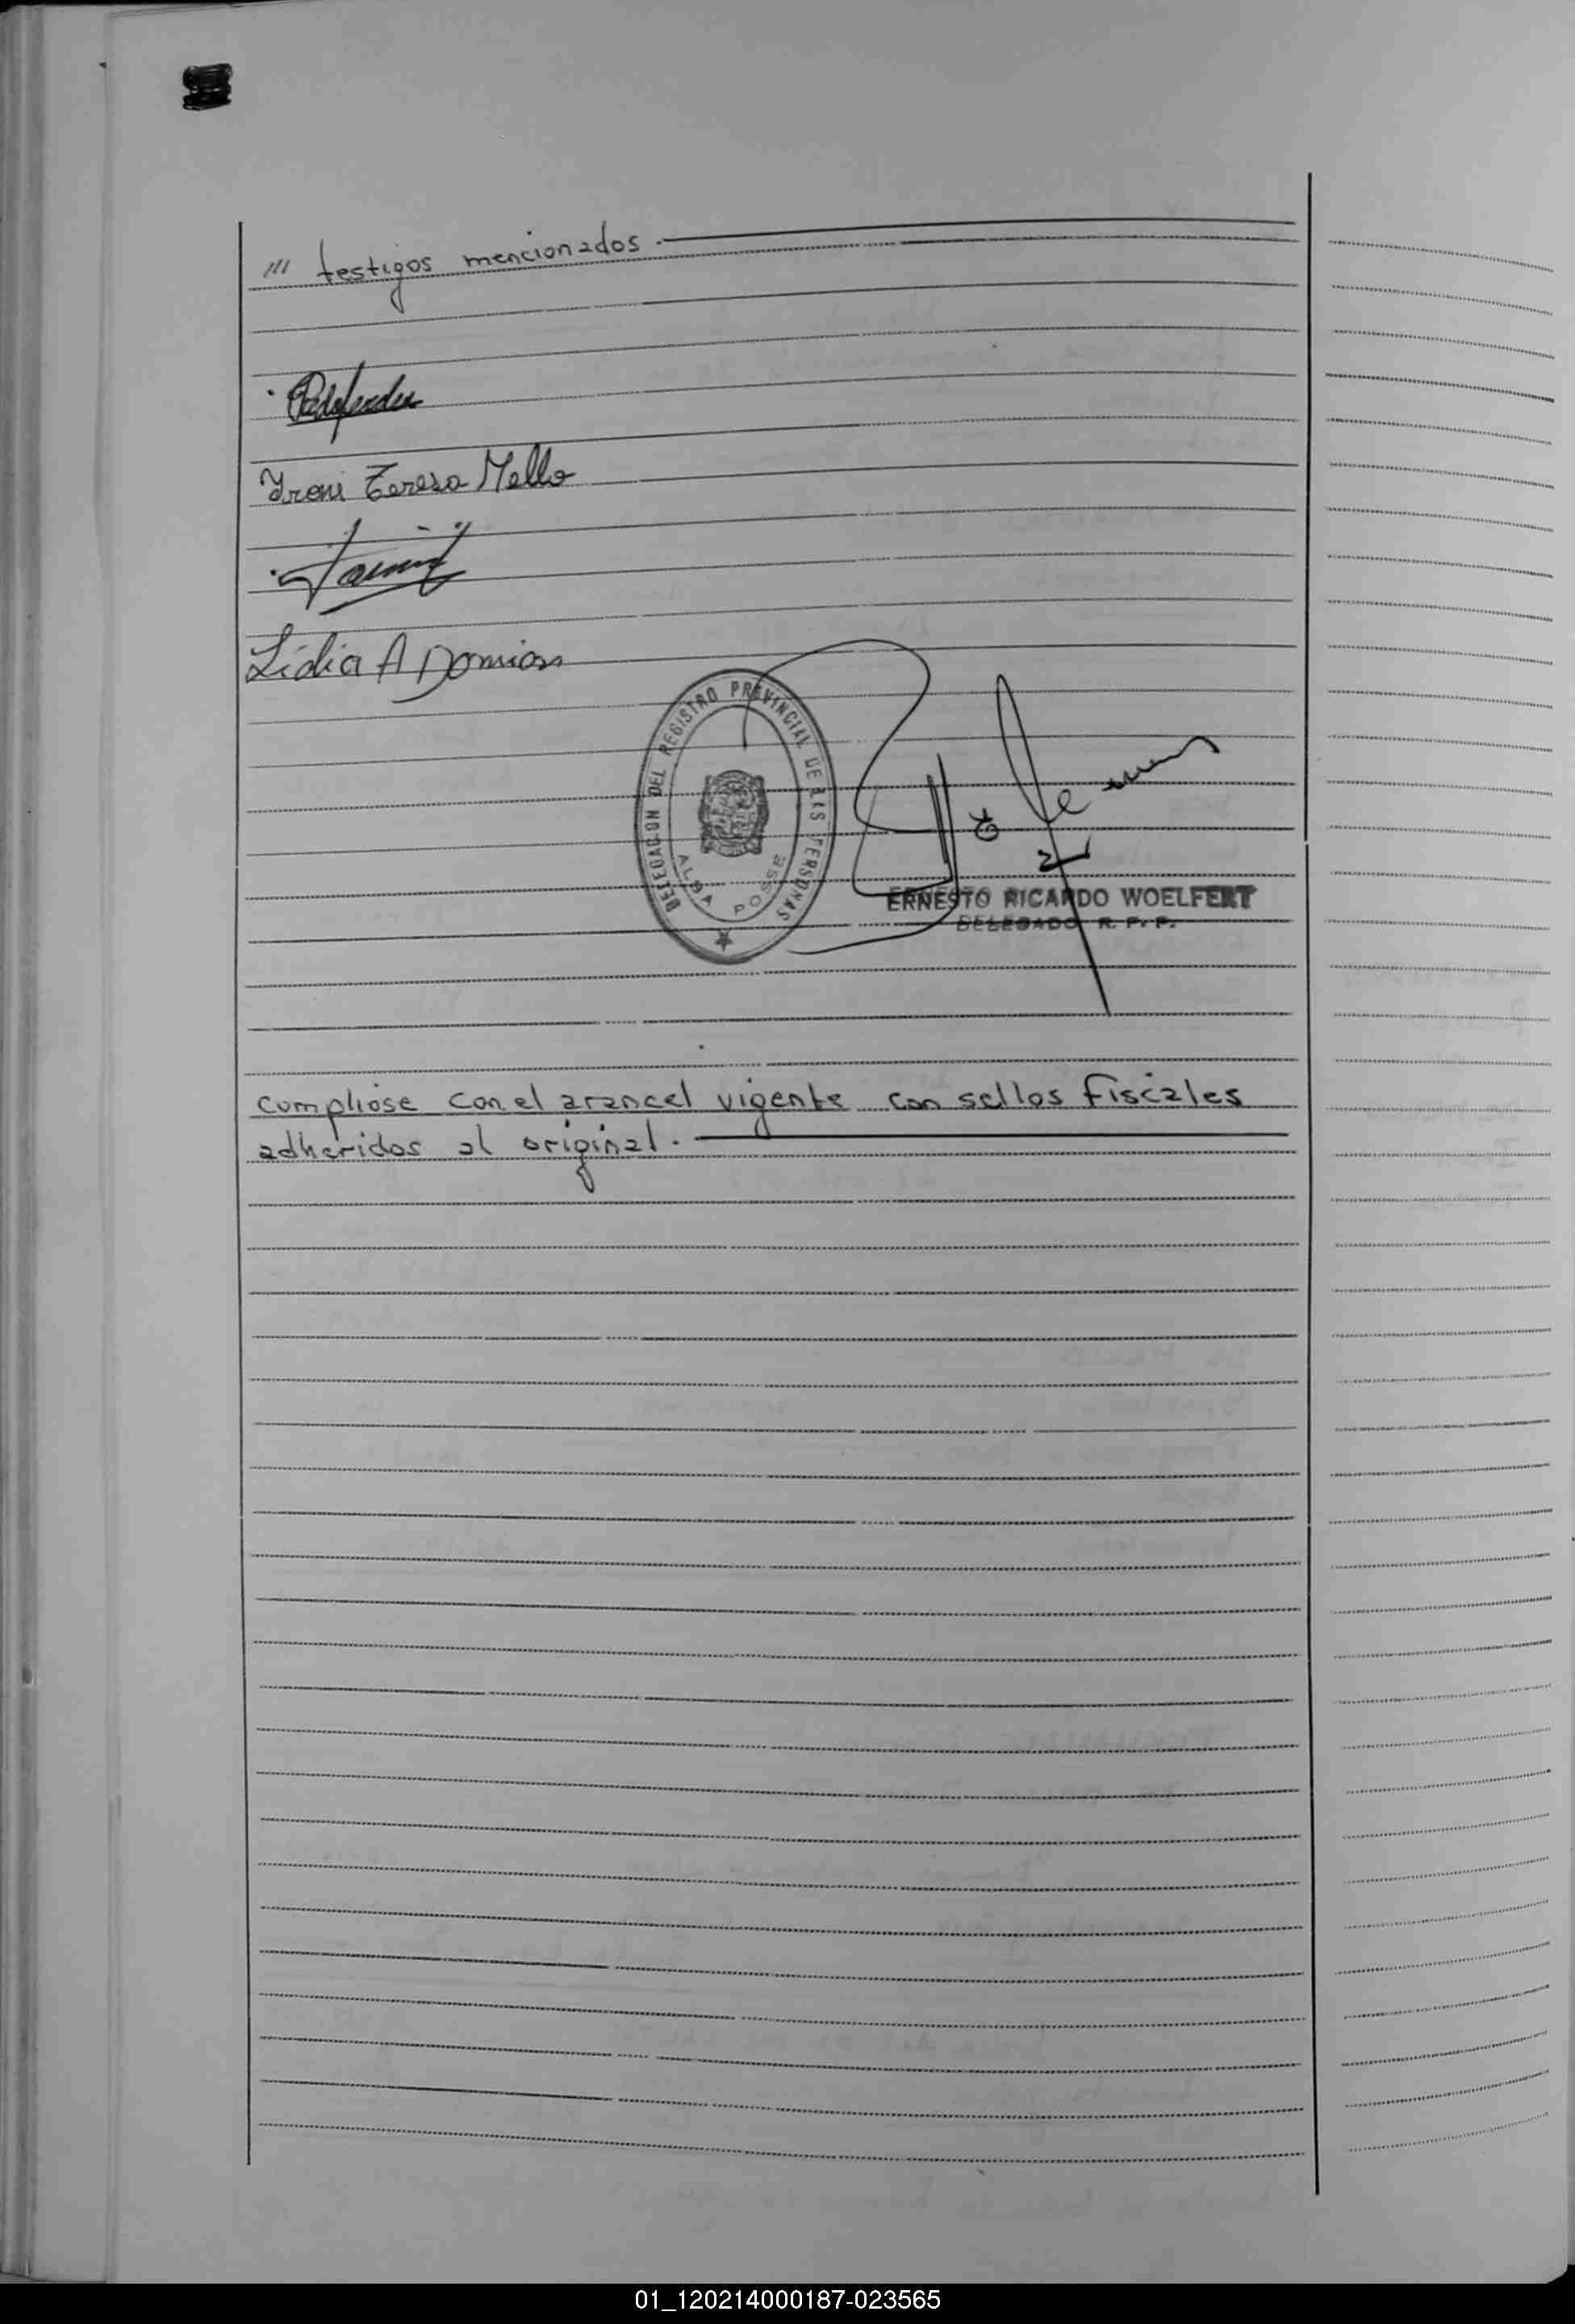 /// testigos mencionados.
Ireni Teresa Mello
Lidia A
DELEGACION DEL REGISTRO PROVINCIAL DE LAS PERSONAS
ALBA POSSE
ERNESTO RICARDO WOELFERT
DELEGADO R. P. P.
compliose con el arancel vigente con sellos fiscales
adheridos al original.
01_120214000187-023565